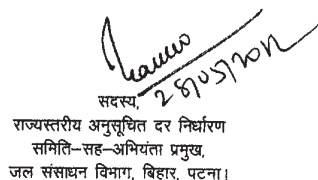 28/05/2012
सदस्य,
राज्यस्तरीय अनुसूचित दर निर्धारण
समिति-सह-अभियंता प्रमुख,
जल संसाधन विभाग, बिहार, पटना।